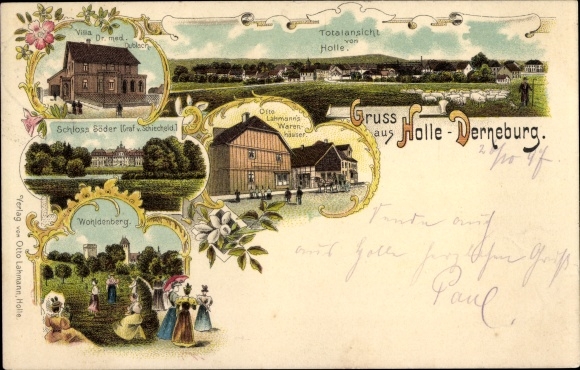 Villa
Dr. med.
Totalansicht
von
Holle.
Schloss Söder [Graf v. Schlecheld.]
Otto
Lahmann's
Waren-
häuser.
Gruss
aus Holle-Derneburg.
Wohldenberg.
Verlag von Otto Lahmann, Holle.
Sende auch
aus Holle herzlichen Gruß
Paul